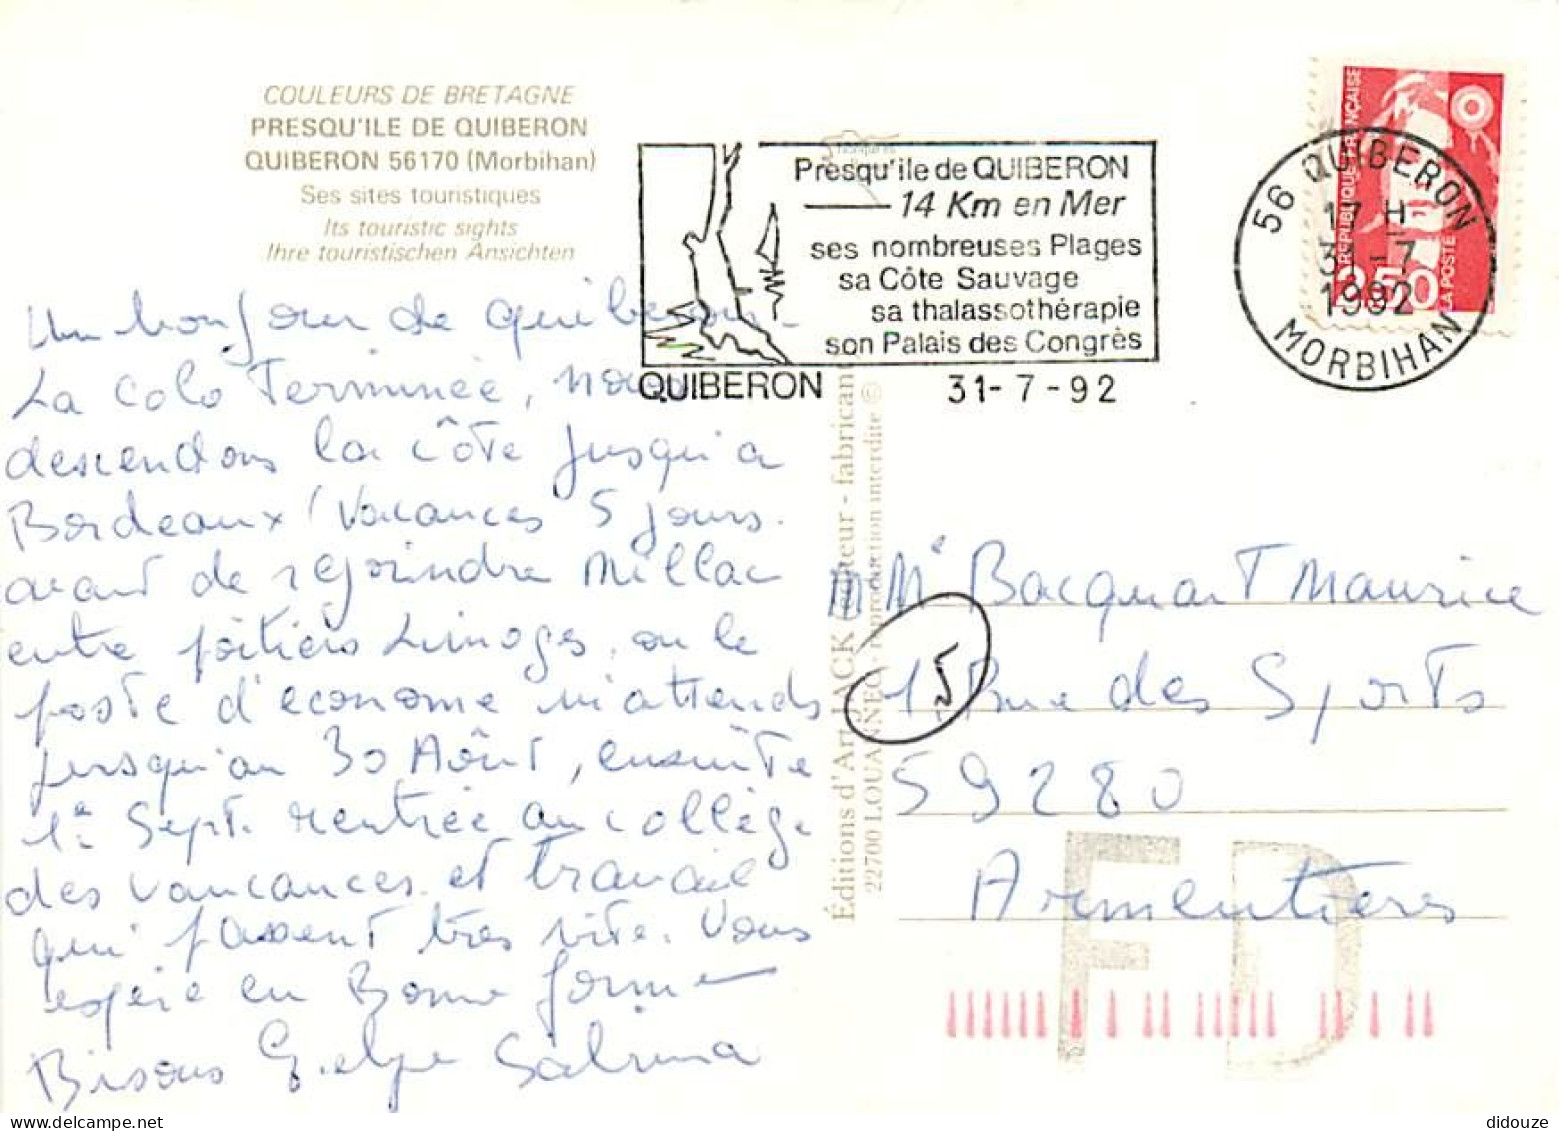 COULEURS DE BRETAGNE
PRESQU'ILE DE QUIBERON
QUIBERON 56170 (Morbihan)
Ses sites touristiques
Its touristic sights
Ihre touristischen Ansichten
Presqu'ile de QUIBERON
14 Km en Mer
ses nombreuses Plages
sa Côte Sauvage
sa thalassothérapie
son Palais des Congrès
QUIBERON
31-7-92
56 QUIBERON
17 H
31-7
1992
MORBIHAN
RÉPUBLIQUE FRANÇAISE
2,50
LA POSTE
Un bonjour de quiberon.
La colo Terminée, nous
descendons la côte jusqu'a
Bordeaux (vacances 5 jours.
avant de rejoindre Millac
entre poitiers Limoges, ou le
poste d'econome m'attends
jusqu'au 30 Août, ensuite
1er Sept. rentrée au collège
des vancances et travail
qui passent très vite. Vous
espère en Bonne forme
Bisous Sabrina
Éditions d'Art JACK éditeur - fabricant
22700 LOUANNEC - reproduction interdite ©
M Me Bacquart Maurice
15 Rue des Sports
59280
Armentières
FD
didouze